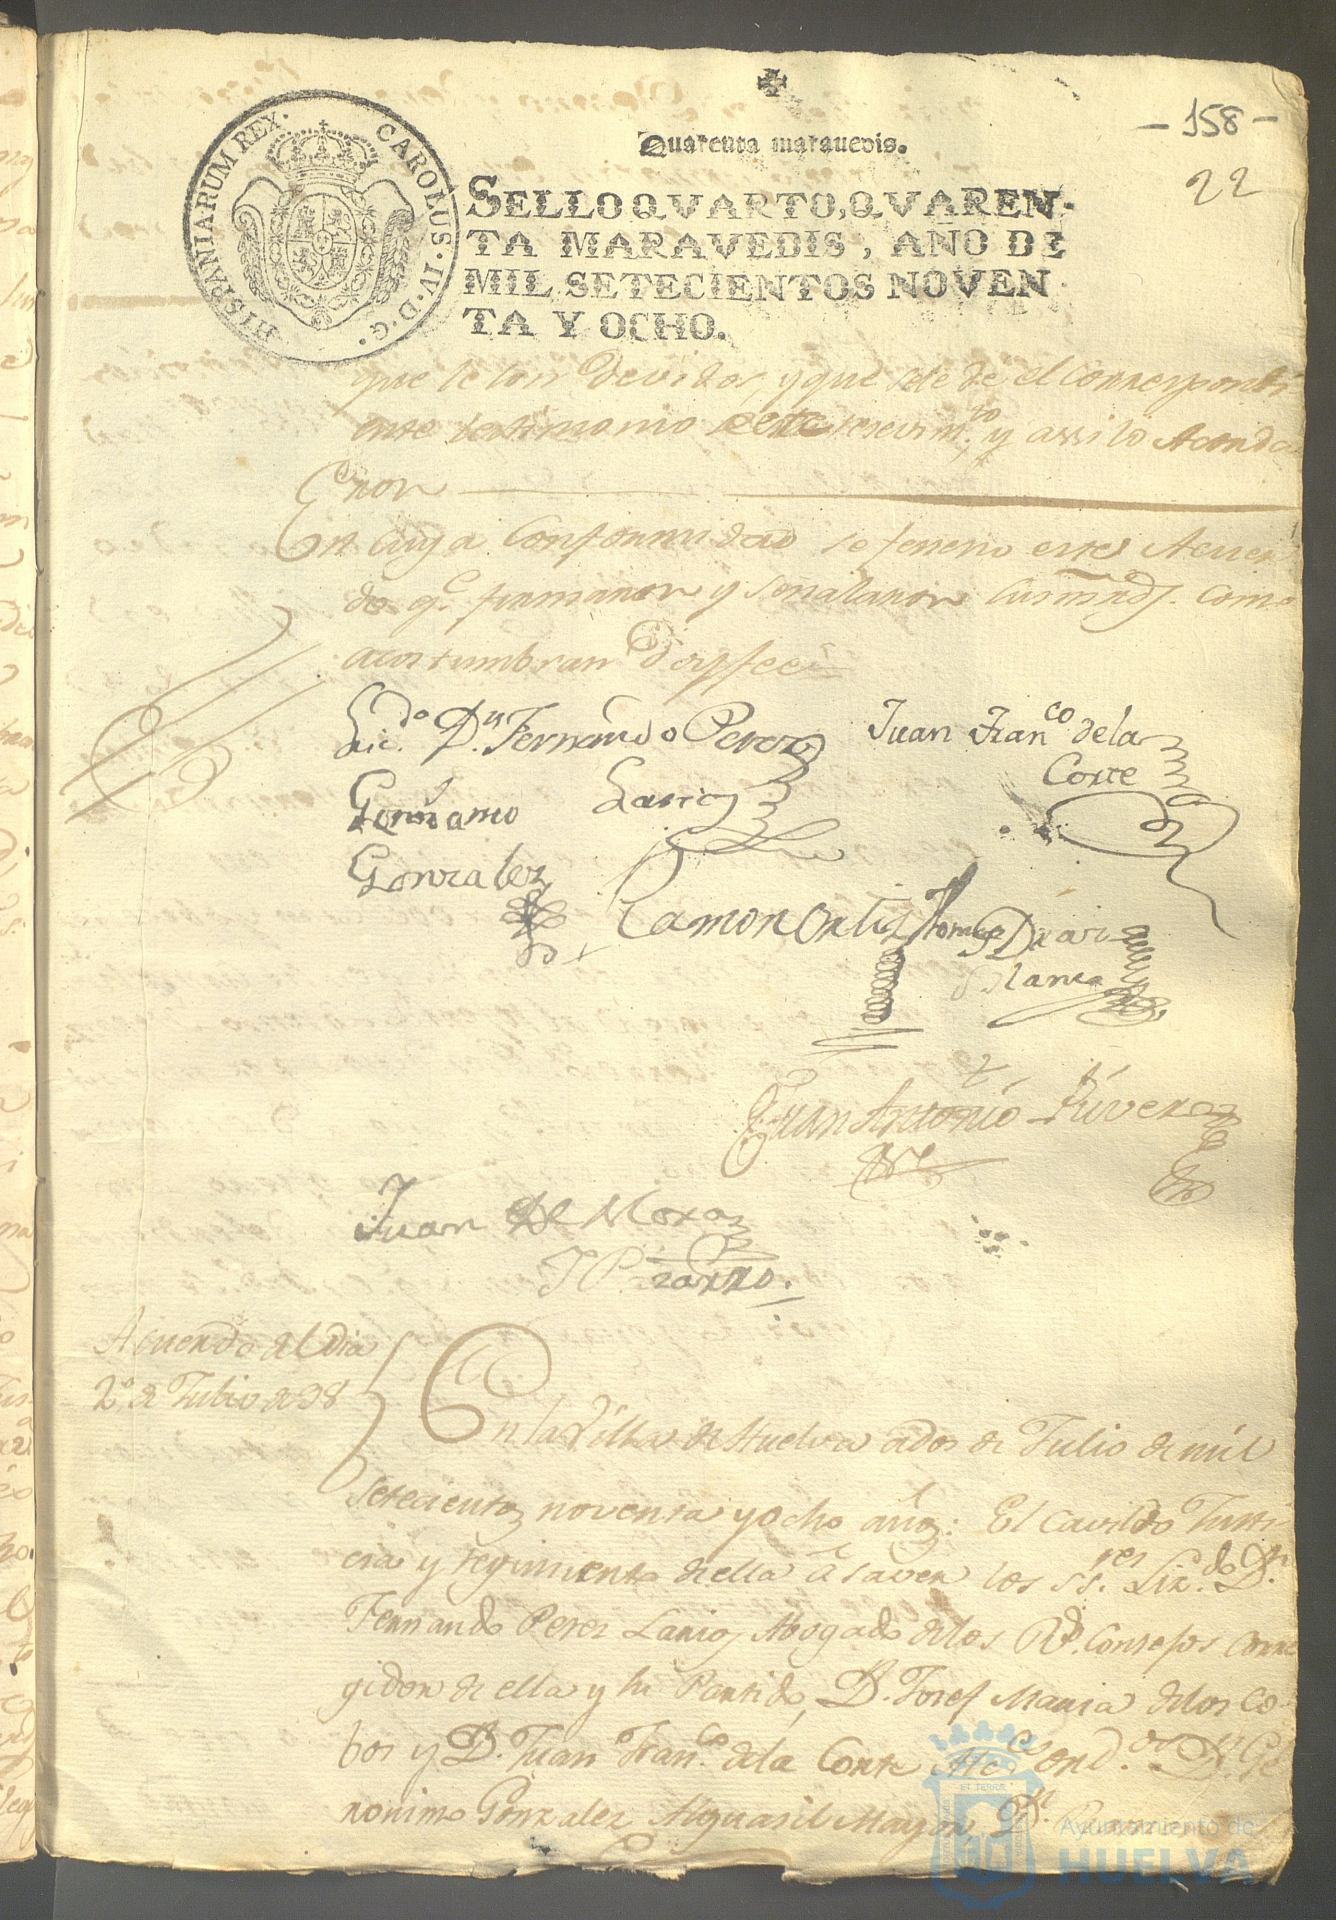 - 158 -
22
Quarenta marauedis.
SELLO QVARTO, QVAREN-
TA MARAVEDIS, AÑO DE
MIL SETECIENTOS NOVEN-
TA Y OCHO.
HISPANIARUM REX. CAROLUS. IV. D. G.
que le son devidos, y que sele de el correspondi
ente testimonio y assi lo Acorda
ron
En cuya Conformidad se feneno este Acuer
do q.e firmaron y señalaron sus mrds. como
acostumbran Doy fee
Lic.do D.n Fernando Perez
Lario
Juan Fran.co de la
Corte
Geronimo
Gonzalez
Ramon Ortiz
Tomas Diaz
Blanco
Juan Antonio Rivera
Juan De Mora
Y Pizarro.
Acuerdo del dia
2,, de Julio de 98
En la Villa de Huelva a dos de Julio de mil
setecientos noventa y ocho años: El Cavildo Justi
cia y regimiento de ella á saver los ss.res Liz.do D.n
Fernando Perez Lario Abogado de los R.s Consejos Corre
gidor de ella y su Partido, D.n Josef Maria de los Co-
bos y D.n Juan Fran.co de la Corte Alc.es ord.os D.n Ge
ronimo Gonzalez Alguasil Mayor D.n
Ayuntamiento de
HUELVA